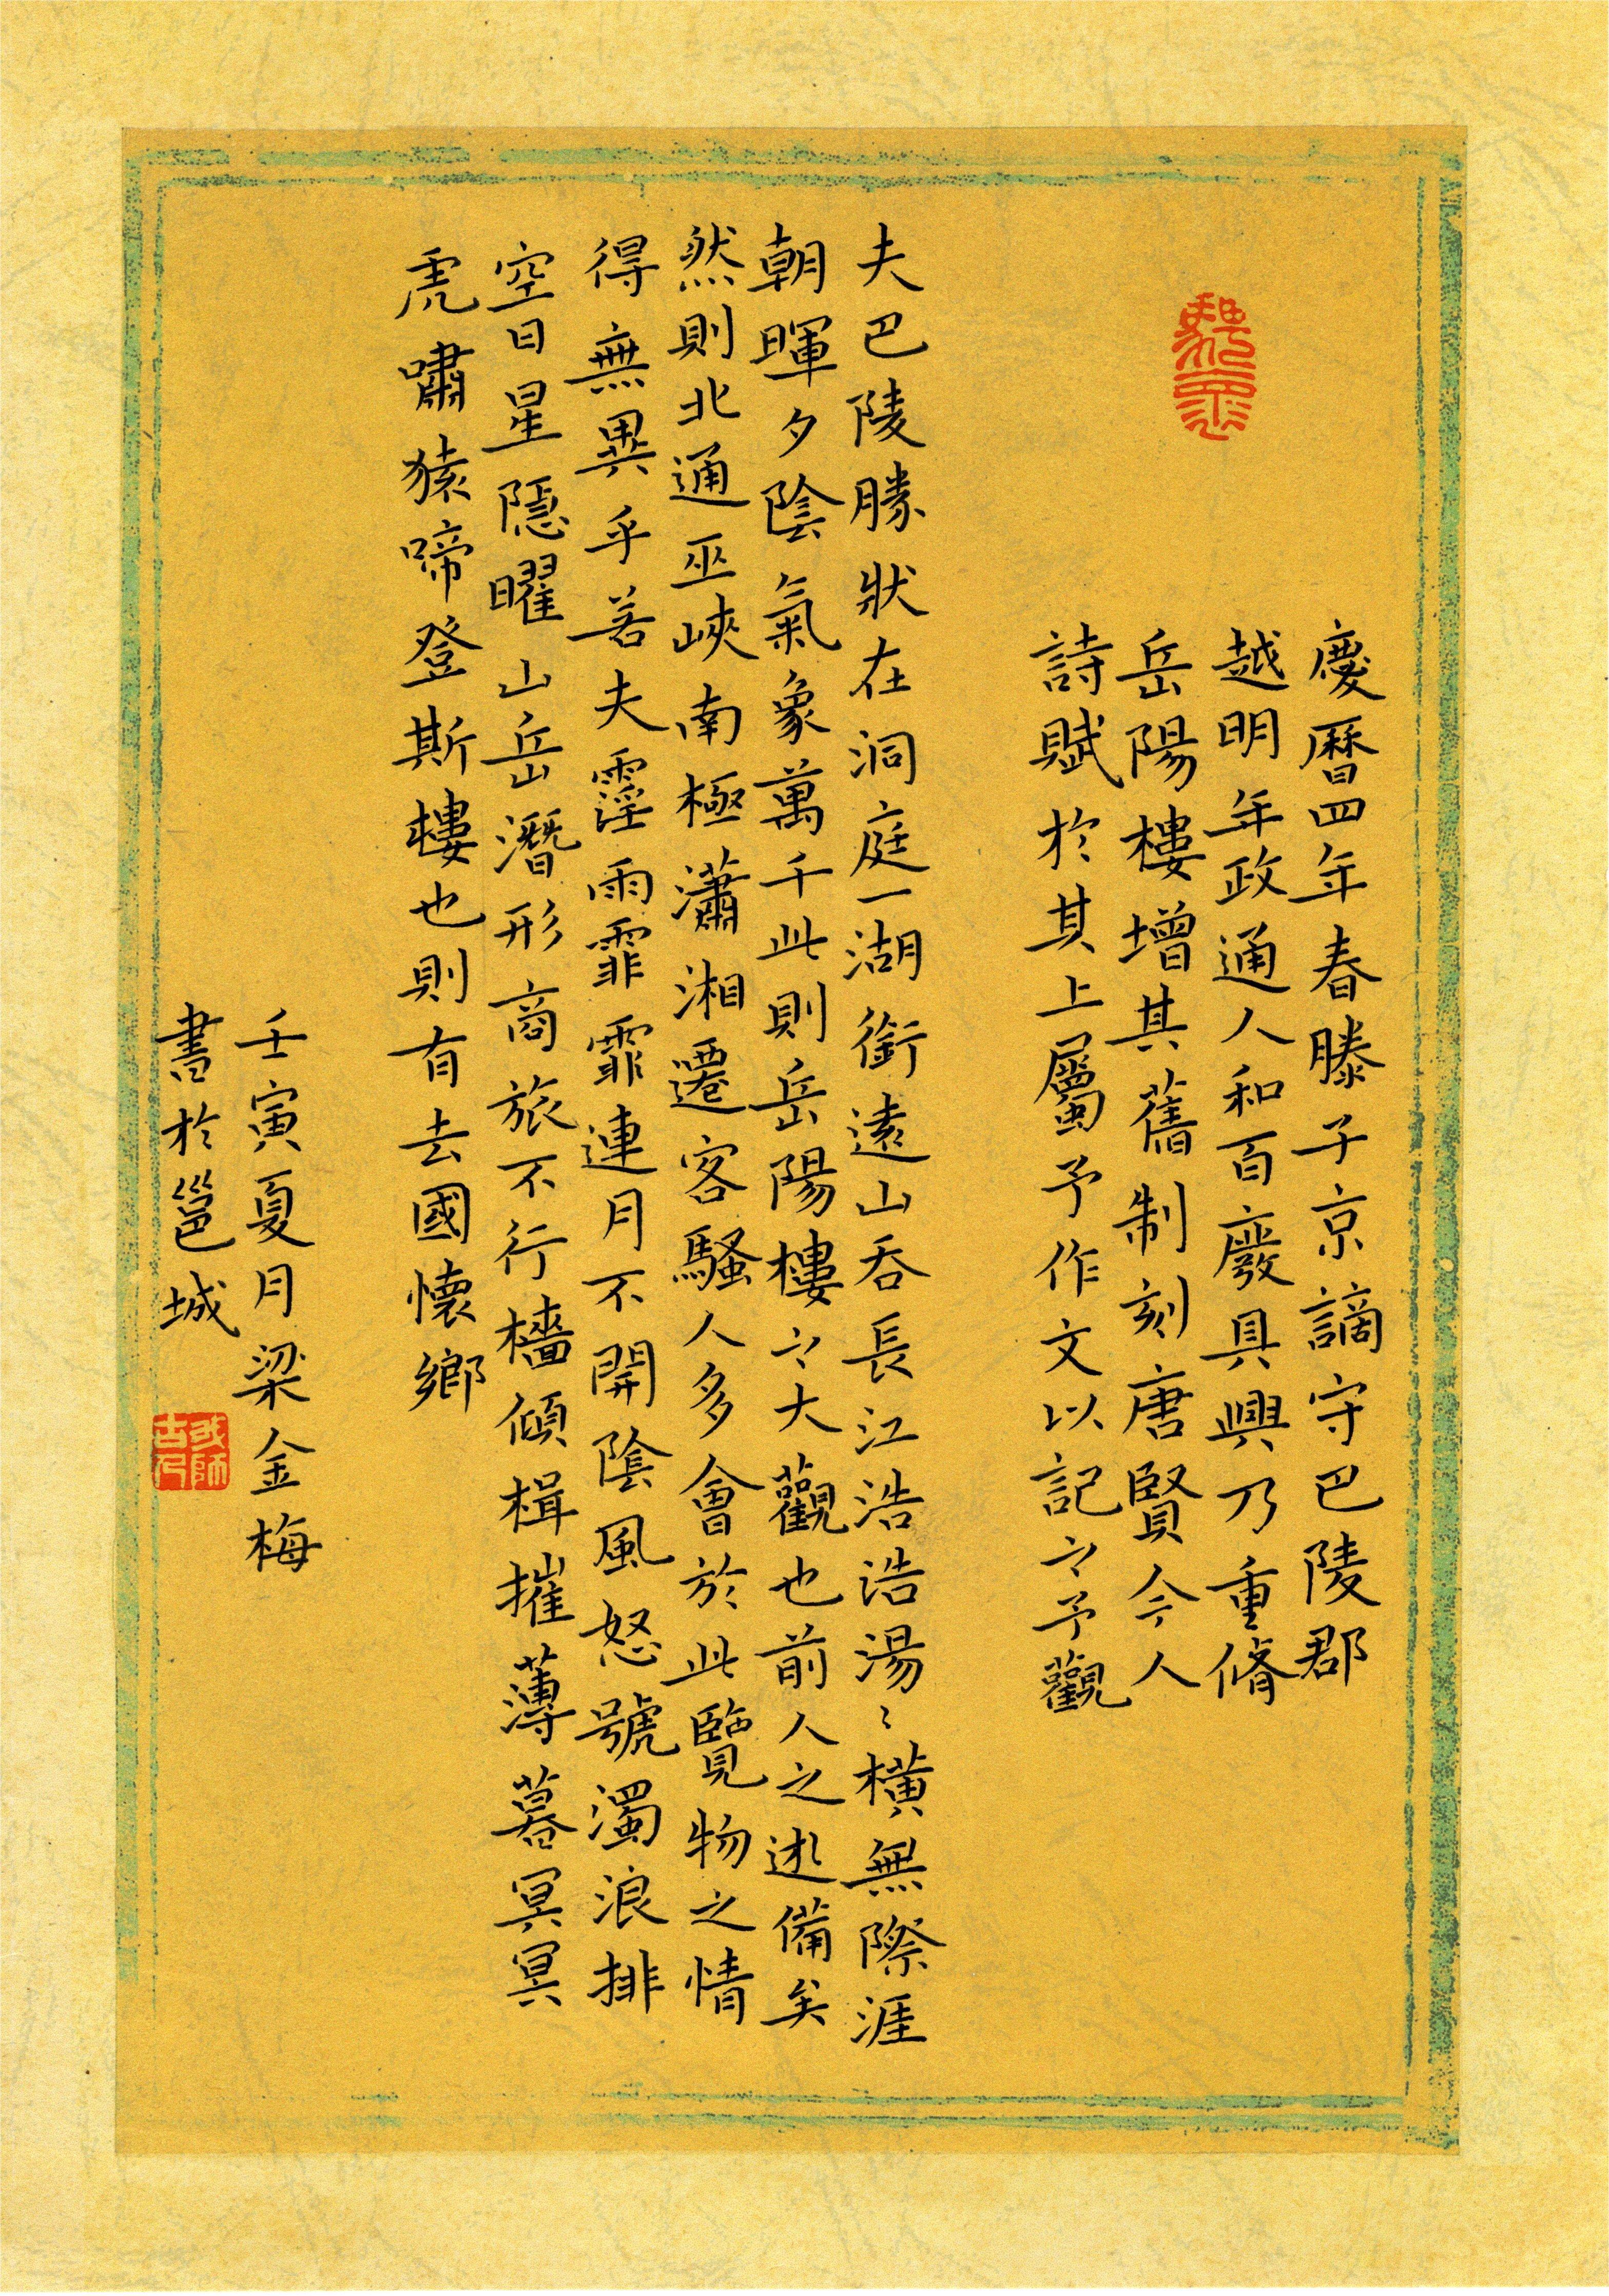 慶曆四年春滕子京謫守巴陵郡
越明年政通人和百廢具興乃重脩
岳陽樓增其舊制刻唐賢今人
詩賦於其上屬予作文以記之予觀
夫巴陵勝狀在洞庭一湖銜遠山吞長江浩浩湯〻橫無際涯
朝暉夕陰氣象萬千此則岳陽樓之大觀也前人之述備矣
然則北通巫峽南極瀟湘遷客騷人多會於此覽物之情
得無異乎若夫霪雨霏霏連月不開陰風怒號濁浪排
空日星隱曜山岳潛形商旅不行檣傾楫摧薄暮冥冥
虎嘯猿啼登斯樓也則有去國懷鄉
壬寅夏月梁金梅
書於邕城
我師
古人